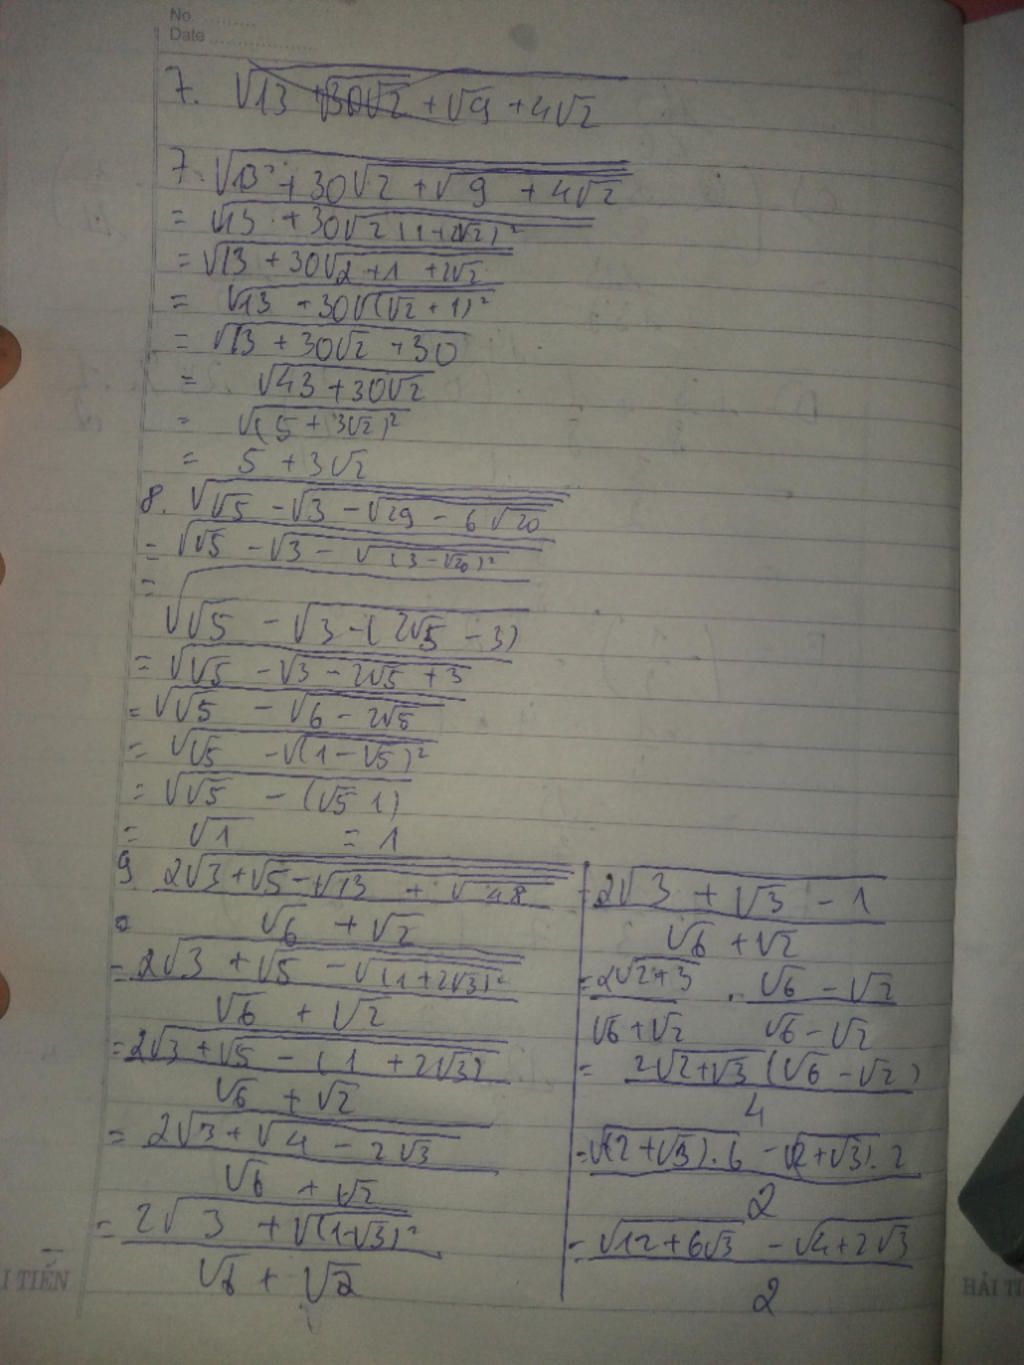 No. ..........
Date ..................
7. √13 + √30√2 + √9 + 4√2
7. √13 + 30√2 + √9 + 4√2
= √13 + 30√2 (1+2√2)²
= √13 + 30√2 + 1 + 2√2
= √13 + 30√(√2 + 1)²
= √13 + 30√2 + 30
= √43 + 30√2
= √(5 + 3√2)²
= 5 + 3√2
8. √√5 - √3 - √29 - 6√20
= √√5 - √3 - √(3 - √20)²
=
√√5 - √3 - (2√5 - 3)
= √√5 - √3 - 2√5 + 3
= √√5 - √6 - 2√5
= √√5 - √(1 - √5)²
= √√5 - (√5 1)
= √1 = 1
9 2√3 + √5 - √13 + √48
√6 + √2
= 2√3 + √5 - √(1 + 2√3)²
√6 + √2
= 2√3 + √5 - (1 + 2√3)
√6 + √2
= 2√3 + √4 - 2√3
√6 + √2
= 2√3 + √(1-√3)²
√6 + √2
= 2√3 + √3 - 1
√6 + √2
= 2√2+3 . √6 - √2
√6 + √2 √6 - √2
= 2√2+√3 (√6 - √2)
4
= √(2 + √3).6 - √(2+√3).2
2
= √12 + 6√3 - √4 + 2√3
2
I TIẾN
HẢI TI